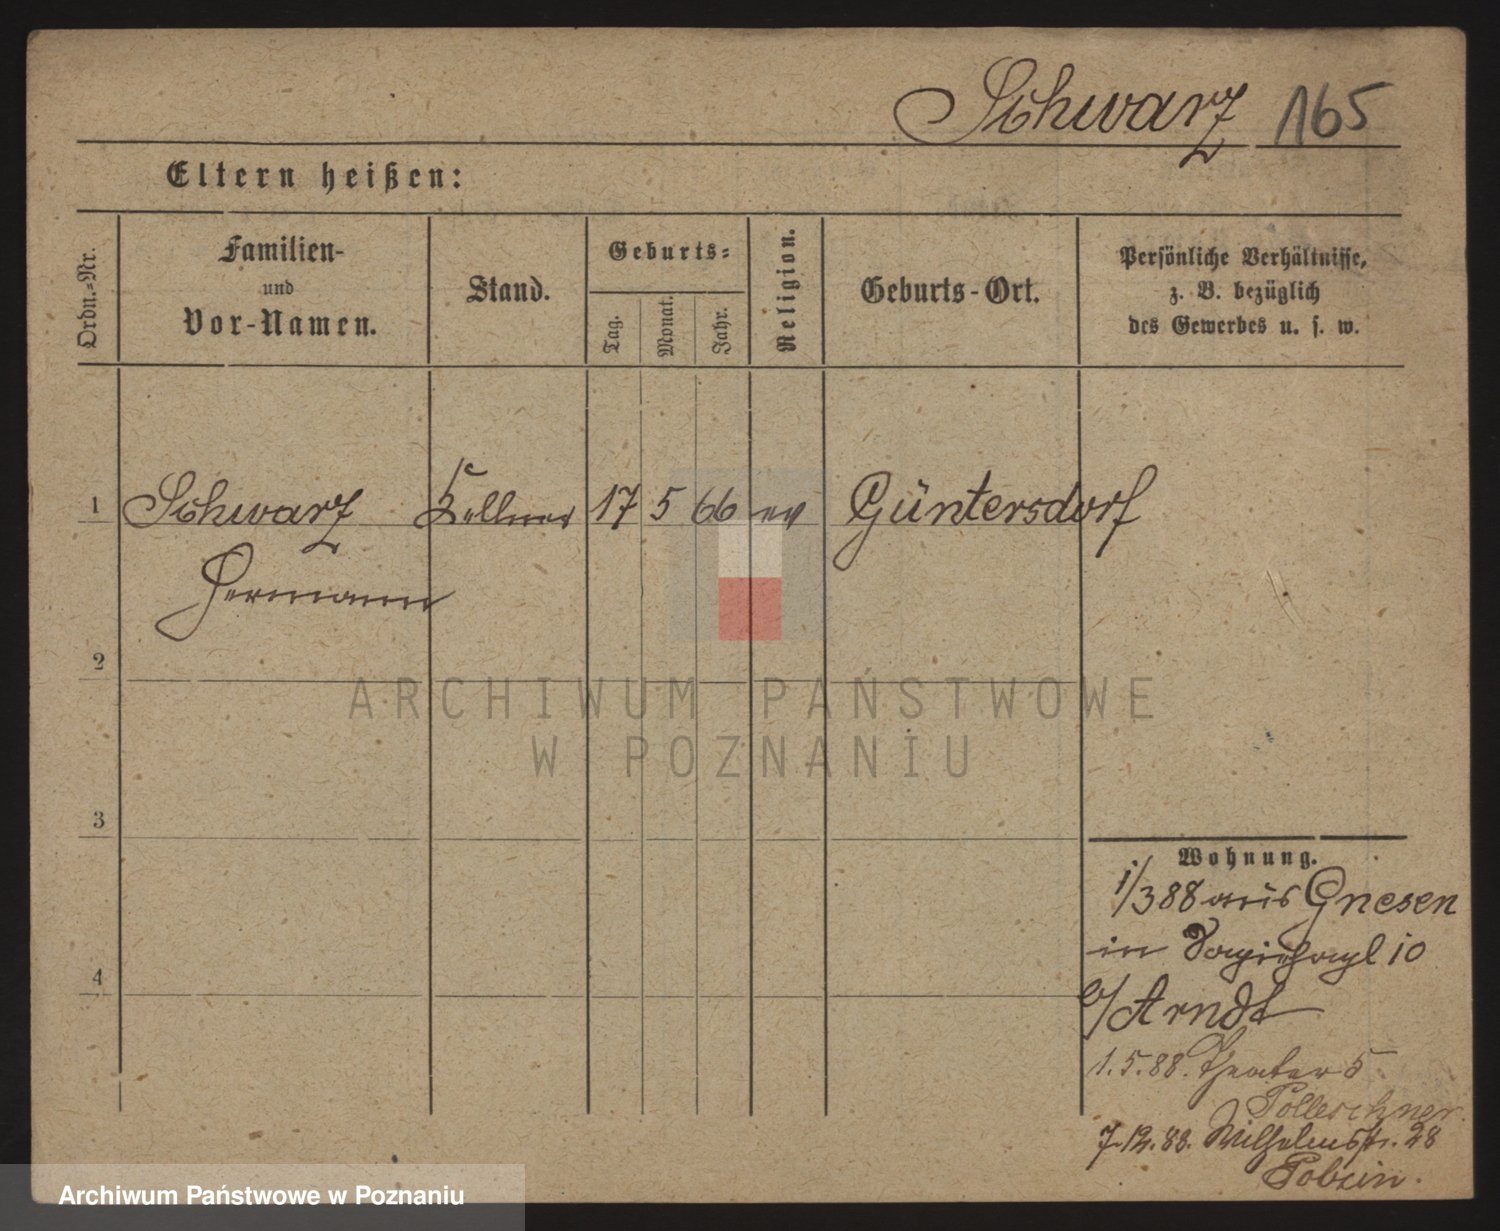 Schwarz 165
Eltern heißen:
Ordn.-Nr.
Familien-
und
Vor-Namen.
Stand.
Geburts-
Tag.
Monat.
Jahr.
Religion.
Geburts-Ort.
Persönliche Verhältnisse,
z. B. bezüglich
des Gewerbes u. s. w.
1 Schwarz Kellner 17 5 66 ev Güntersdorf
Hermann
2
3
4
Wohnung.
1/3 88 aus Gnesen
in 10
b/ Arndt
1.5.88. Theater 5
7.12.88. Wilhelmstr. 28
ARCHIWUM PAŃSTWOWE
W POZNANIU
Archiwum Państwowe w Poznaniu